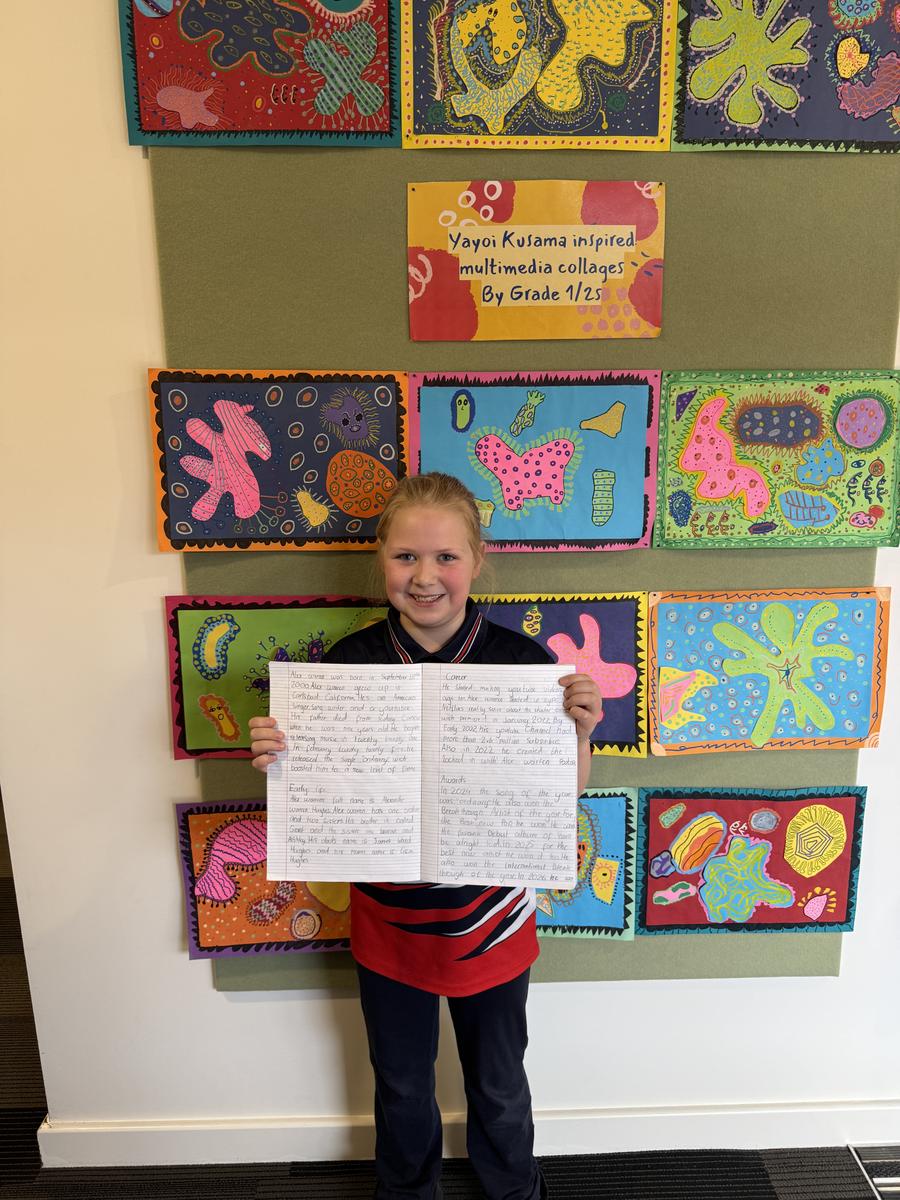 Yayoi Kusama inspired
multimedia collages
By Grade 1/2s
Alex warren was born in September
2000 Alex warren grew up in
Carlsbad California. Hes an American
singer, song writer and a youtuber.
His father died from kidney cancer
when he was nine years old. He began
releasing music in twenty twenty one
In february twenty twenty five he
released the single ordinary wich
boosted him to a new level of fame
Early life
Alex warrens full name is Alexander
warren Hughes. Alex warren hats one brother
and two sisters. His brother is called
Grant and the sisters are lauren and
Ashley. His dads name is James
Hughes and his mums name is
Hughes
Career
He started making youtube videos
Early 2022 his youtube channel had
more than million
Also in 2022 he created the
locked in with Alex warren Podcast
Awards
In 2024 the song of the year
was ordinary. He also won the
Breakthrough Artist of the year for
his favourite Debut album of
be alright kid. in 2025 for the
best new artist he won it too. He
also won the International Break
through of the year. In 2026 he